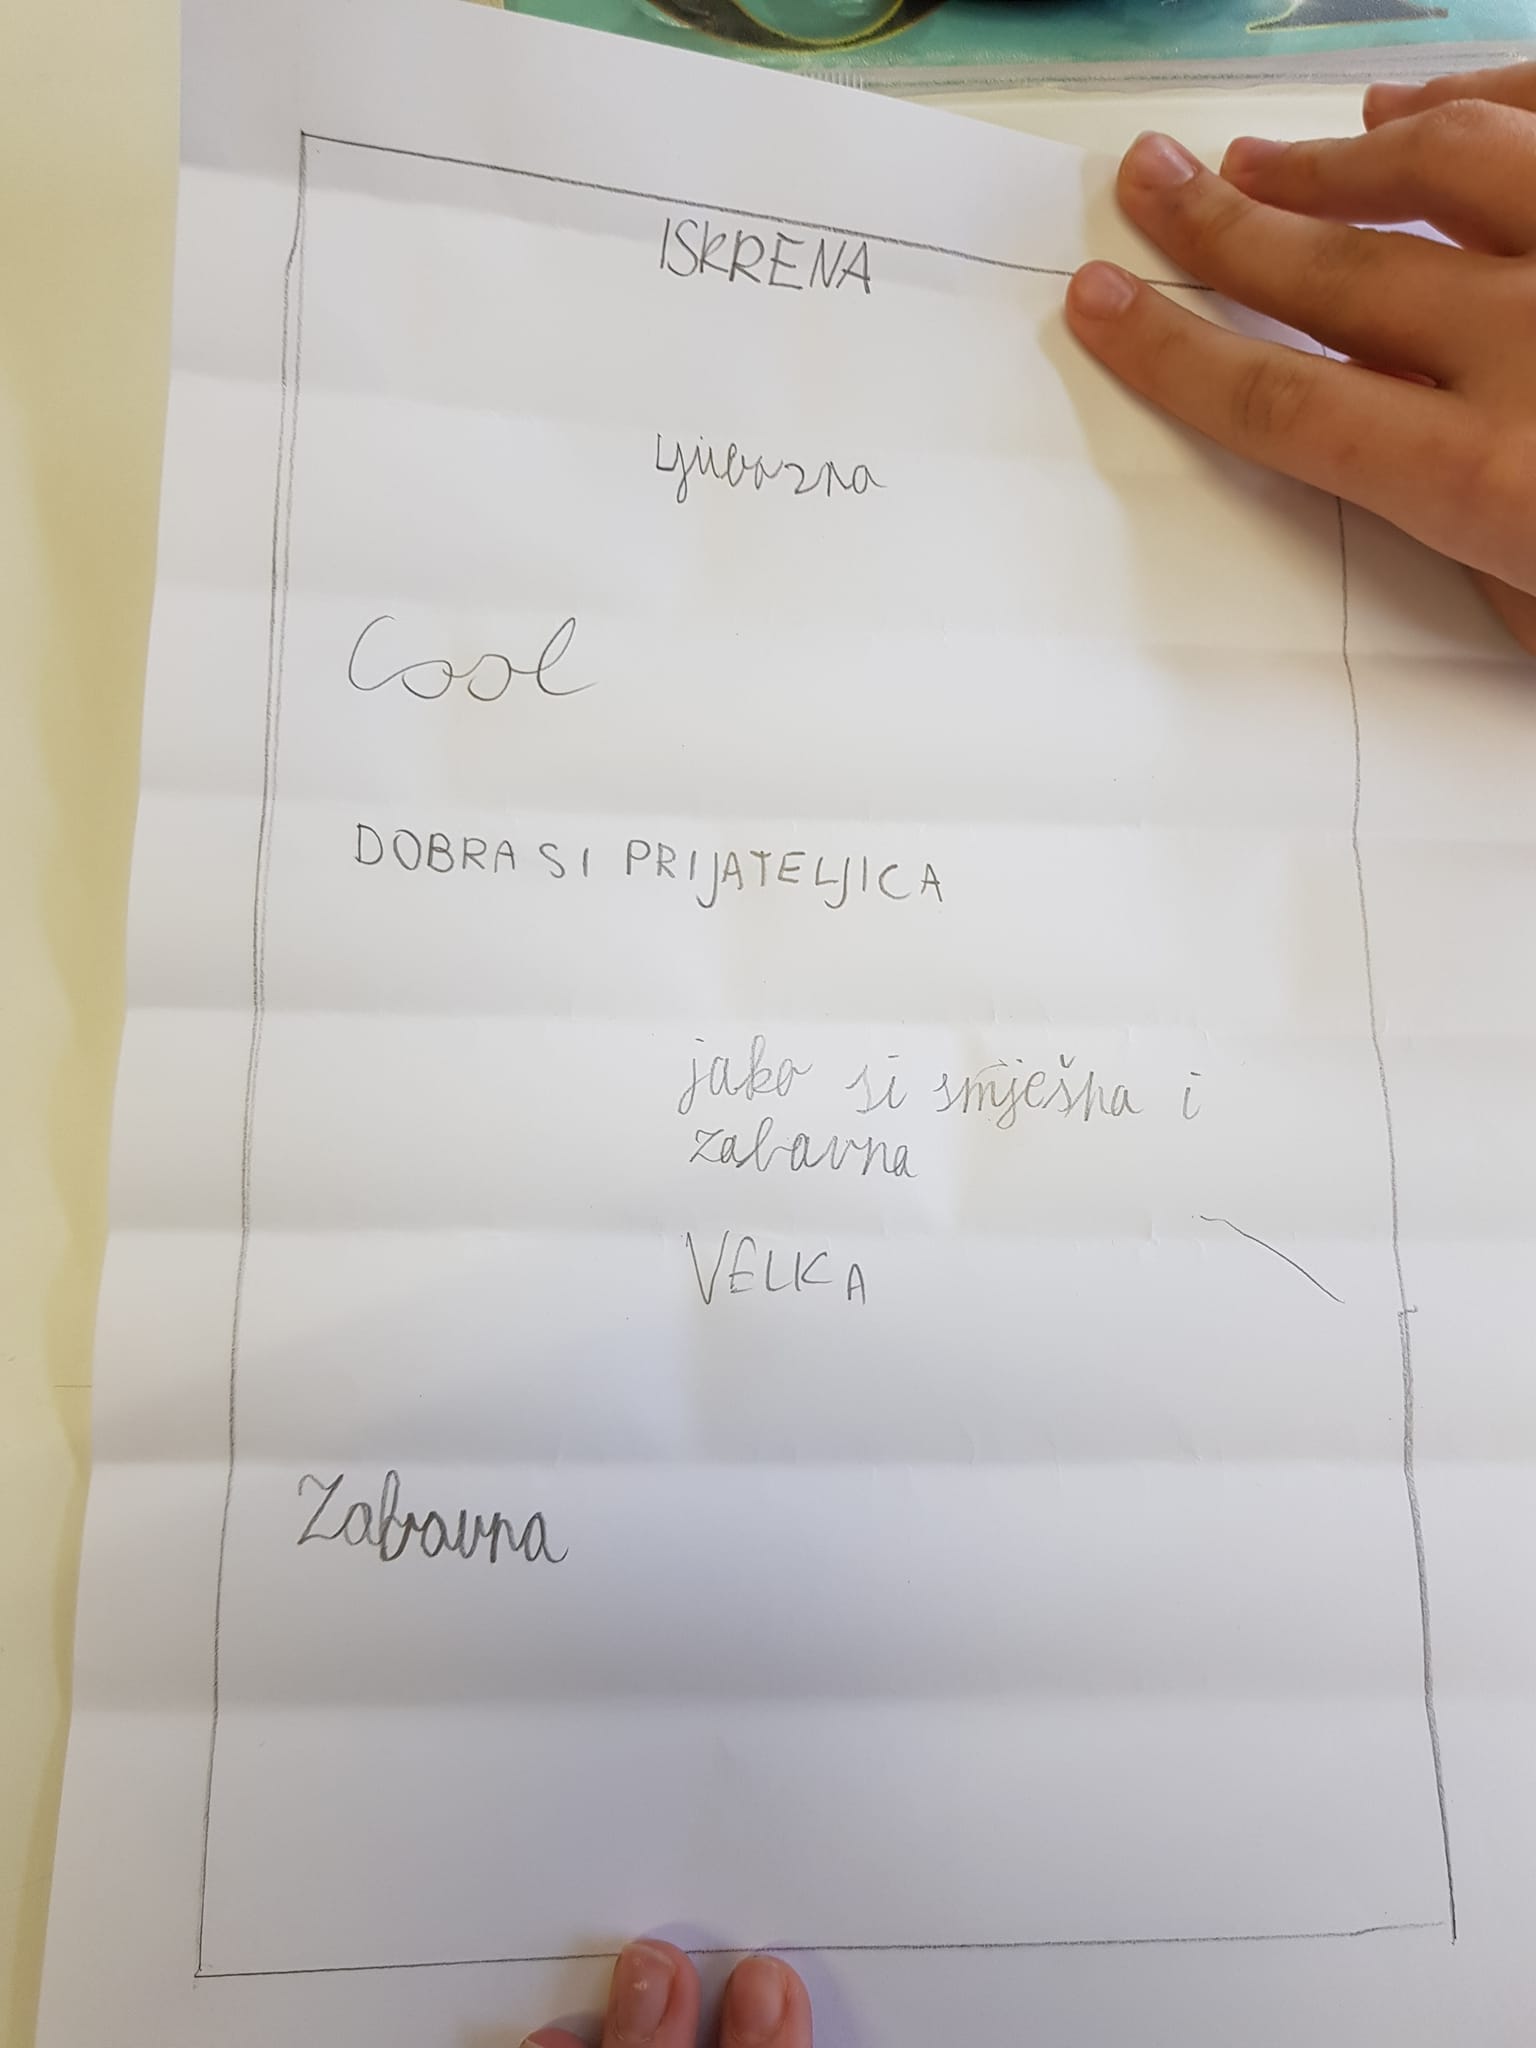 ISKRENA
Ljubazna
Cool
DOBRA SI PRIJATELJICA
jako si smješna i
zabavna
VELKA
Zabavna